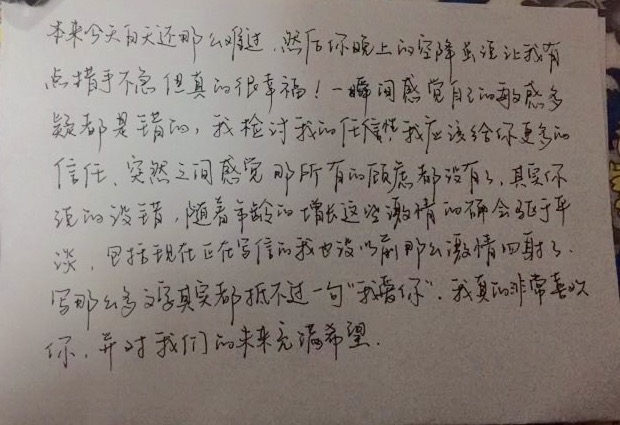 本来今天白天还那么难过，然后你晚上的空降虽说让我有
点措手不急但真的很幸福！一瞬间感觉自己的敏感多
疑都是错的，我检讨我的任性，我应该给你更多的
信任、突然之间感觉那所有的顾虑都没有了，其实你
说的没错，随着年龄的增长这些激情的确会趋于平
淡，包括现在正在写信的我也没以前那么激情四射了.
写那么多文字其实都抵不过一句“我爱你”．我真的非常喜欢
你，并对我们的未来充满希望．